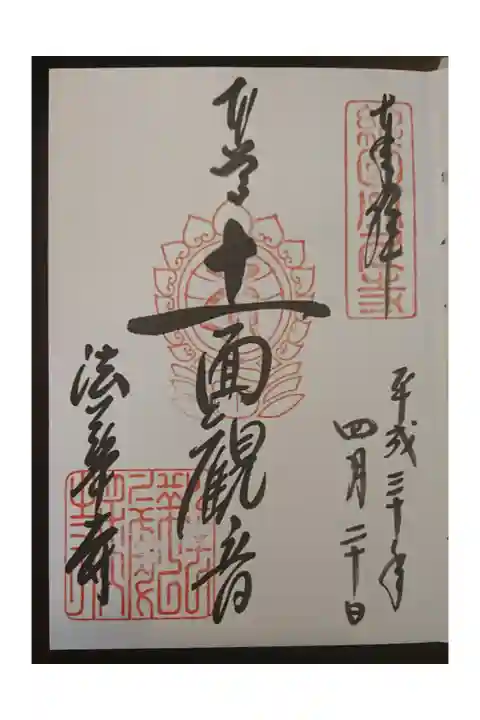 奉拝
平成三十年
四月二十日
本尊十一面觀音
法華寺